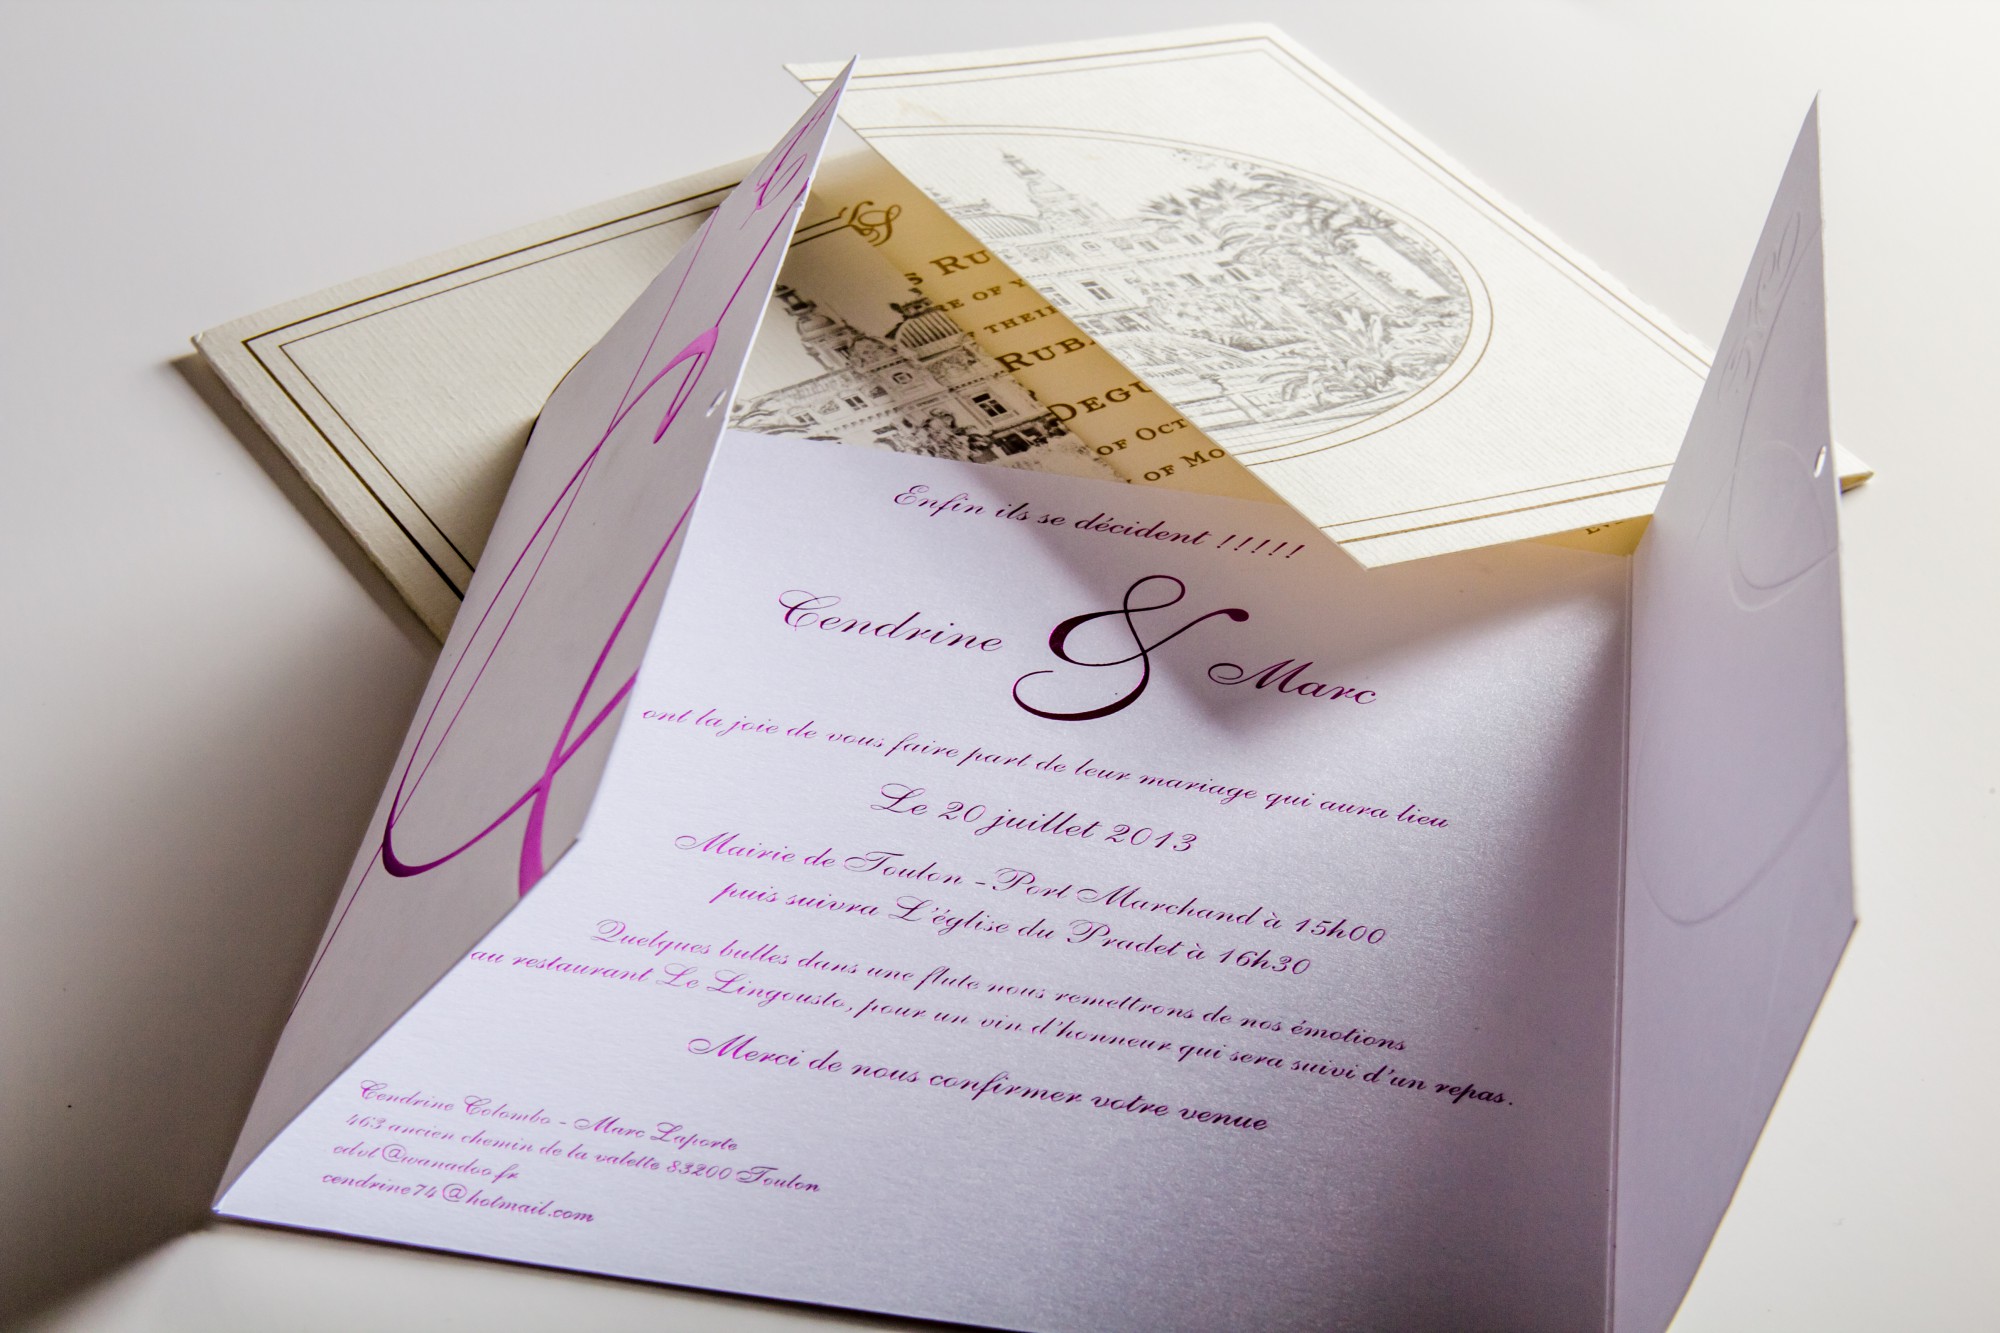 Ru
of
their
Rub
Degu
of Oct
of Mo
Enfin ils se décident !!!!!
Cendrine & Marc
ont la joie de vous faire part de leur mariage qui aura lieu
Le 20 juillet 2013
Mairie de Toulon - Port Marchand à 15h00
puis suivra L'église du Pradet à 16h30
Quelques bulles dans une flute nous remettrons de nos émotions
au restaurant Le Lingousto, pour un vin d'honneur qui sera suivi d'un repas.
Merci de nous confirmer votre venue
Cendrine Colombo - Marc Laporte
463 ancien chemin de la valette 83200 Toulon
edvt@wanadoo.fr
cendrine74@hotmail.com